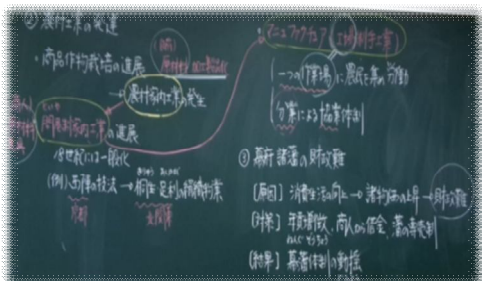 ② 農村工業の発達
・商品作物栽培の進展
→農村家内工業の発生
問屋制家内工業の進展
18世紀には一般化
(例)西陣の技法→桐生・足利の絹織物業
京都
北関東
マニュファクチュア(工場制手工業)
一つの作業場に農民を集め労働
分業による協業体制
③ 幕府・諸藩の財政難
[原因] 消費生活の向上→諸物価の上昇→財政難
[対策] 年貢増収、商人から借金、藩の専売制
[結果] 幕藩体制の動揺